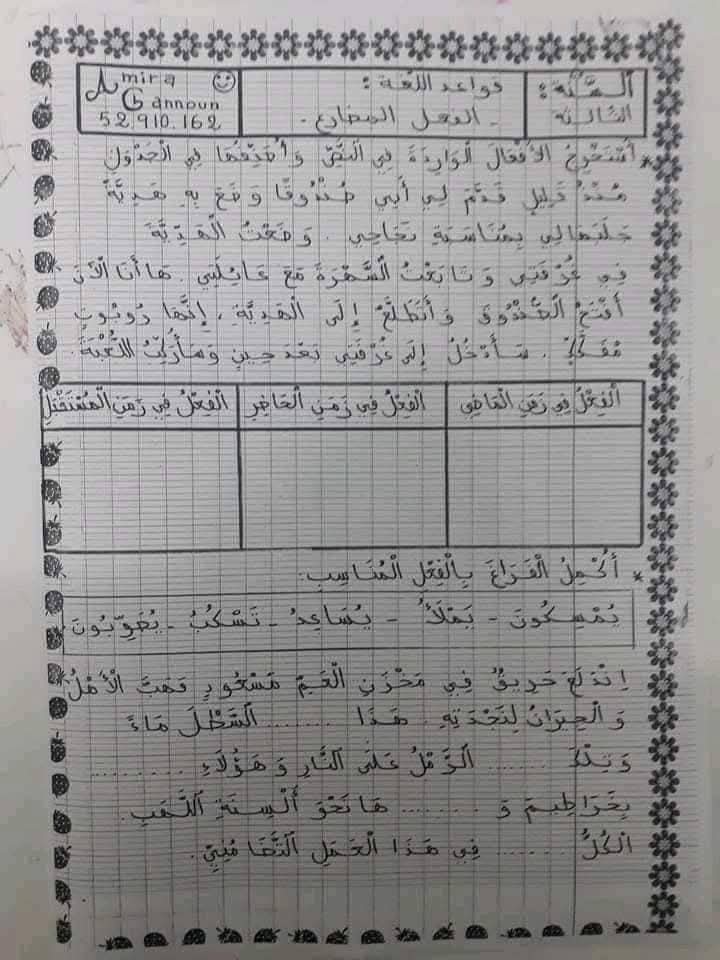 السَّنَة:
الثالثة
قواعد اللغة:
- الفعل المضارع.
Amira
Gannoun
52.910.162
* أَسْتَخْرِجُ الأَفْعَالَ الْوَارِدَةَ فِي النَّصِّ وَأُصَنِّفُهَا فِي الْجَدْوَلِ
مُنْذُ قَلِيلٍ قَدَّمَ لِي أَبِي صُنْدُوقًا وَضَعَ بِهِ هَدِيَّةً
جَلَبَهَا لِي بِمُنَاسَبَةِ نَجَاحِي. وَضَعْتُ الْهَدِيَّةَ
فِي غُرْفَتِي وَتَابَعْتُ السَّهْرَةَ مَعَ عَائِلَتِي. هَا أَنَا الْآنَ
أَفْتَحُ الصُّنْدُوقَ وَأَتَطَلَّعُ إِلَى الْهَدِيَّةِ، إِنَّهَا رُوبُوتٌ
مُفَكِّكٌ. سَأَدْخُلُ إِلَى غُرْفَتِي بَعْدَ حِينٍ وَسَأُرَكِّبُ اللُّعْبَةَ.
الْفِعْلُ فِي زَمَنِ الْمَاضِي
الْفِعْلُ فِي زَمَنِ الْحَاضِرِ
الْفِعْلُ فِي زَمَنِ الْمُسْتَقْبَلِ
* أُكْمِلُ الْفَرَاغَ بِالْفِعْلِ الْمُنَاسِبِ:
يُمْسِكُونَ - يَمْلَأُ - يُسَاعِدُ - تَسْكُبُ - يُصَوِّبُونَ
اِنْدَلَعَ حَرِيقٌ فِي مَخْزَنِ الْعَمِّ مَسْعُودٍ فَهَبَّ الْأَهْلُ
وَالْجِيرَانُ لِنَجْدَتِهِ. هَذَا ........ السَّطْلَ مَاءً
وَتِلْكَ ........ الرَّمْلَ عَلَى النَّارِ وَهَؤُلَاءِ ........
بِخَرَاطِيمَ وَ ........ هَا نَحْوَ أَلْسِنَةِ اللَّهَبِ.
الْكُلُّ ........ فِي هَذَا الْعَمَلِ التَّضَامُنِيِّ.